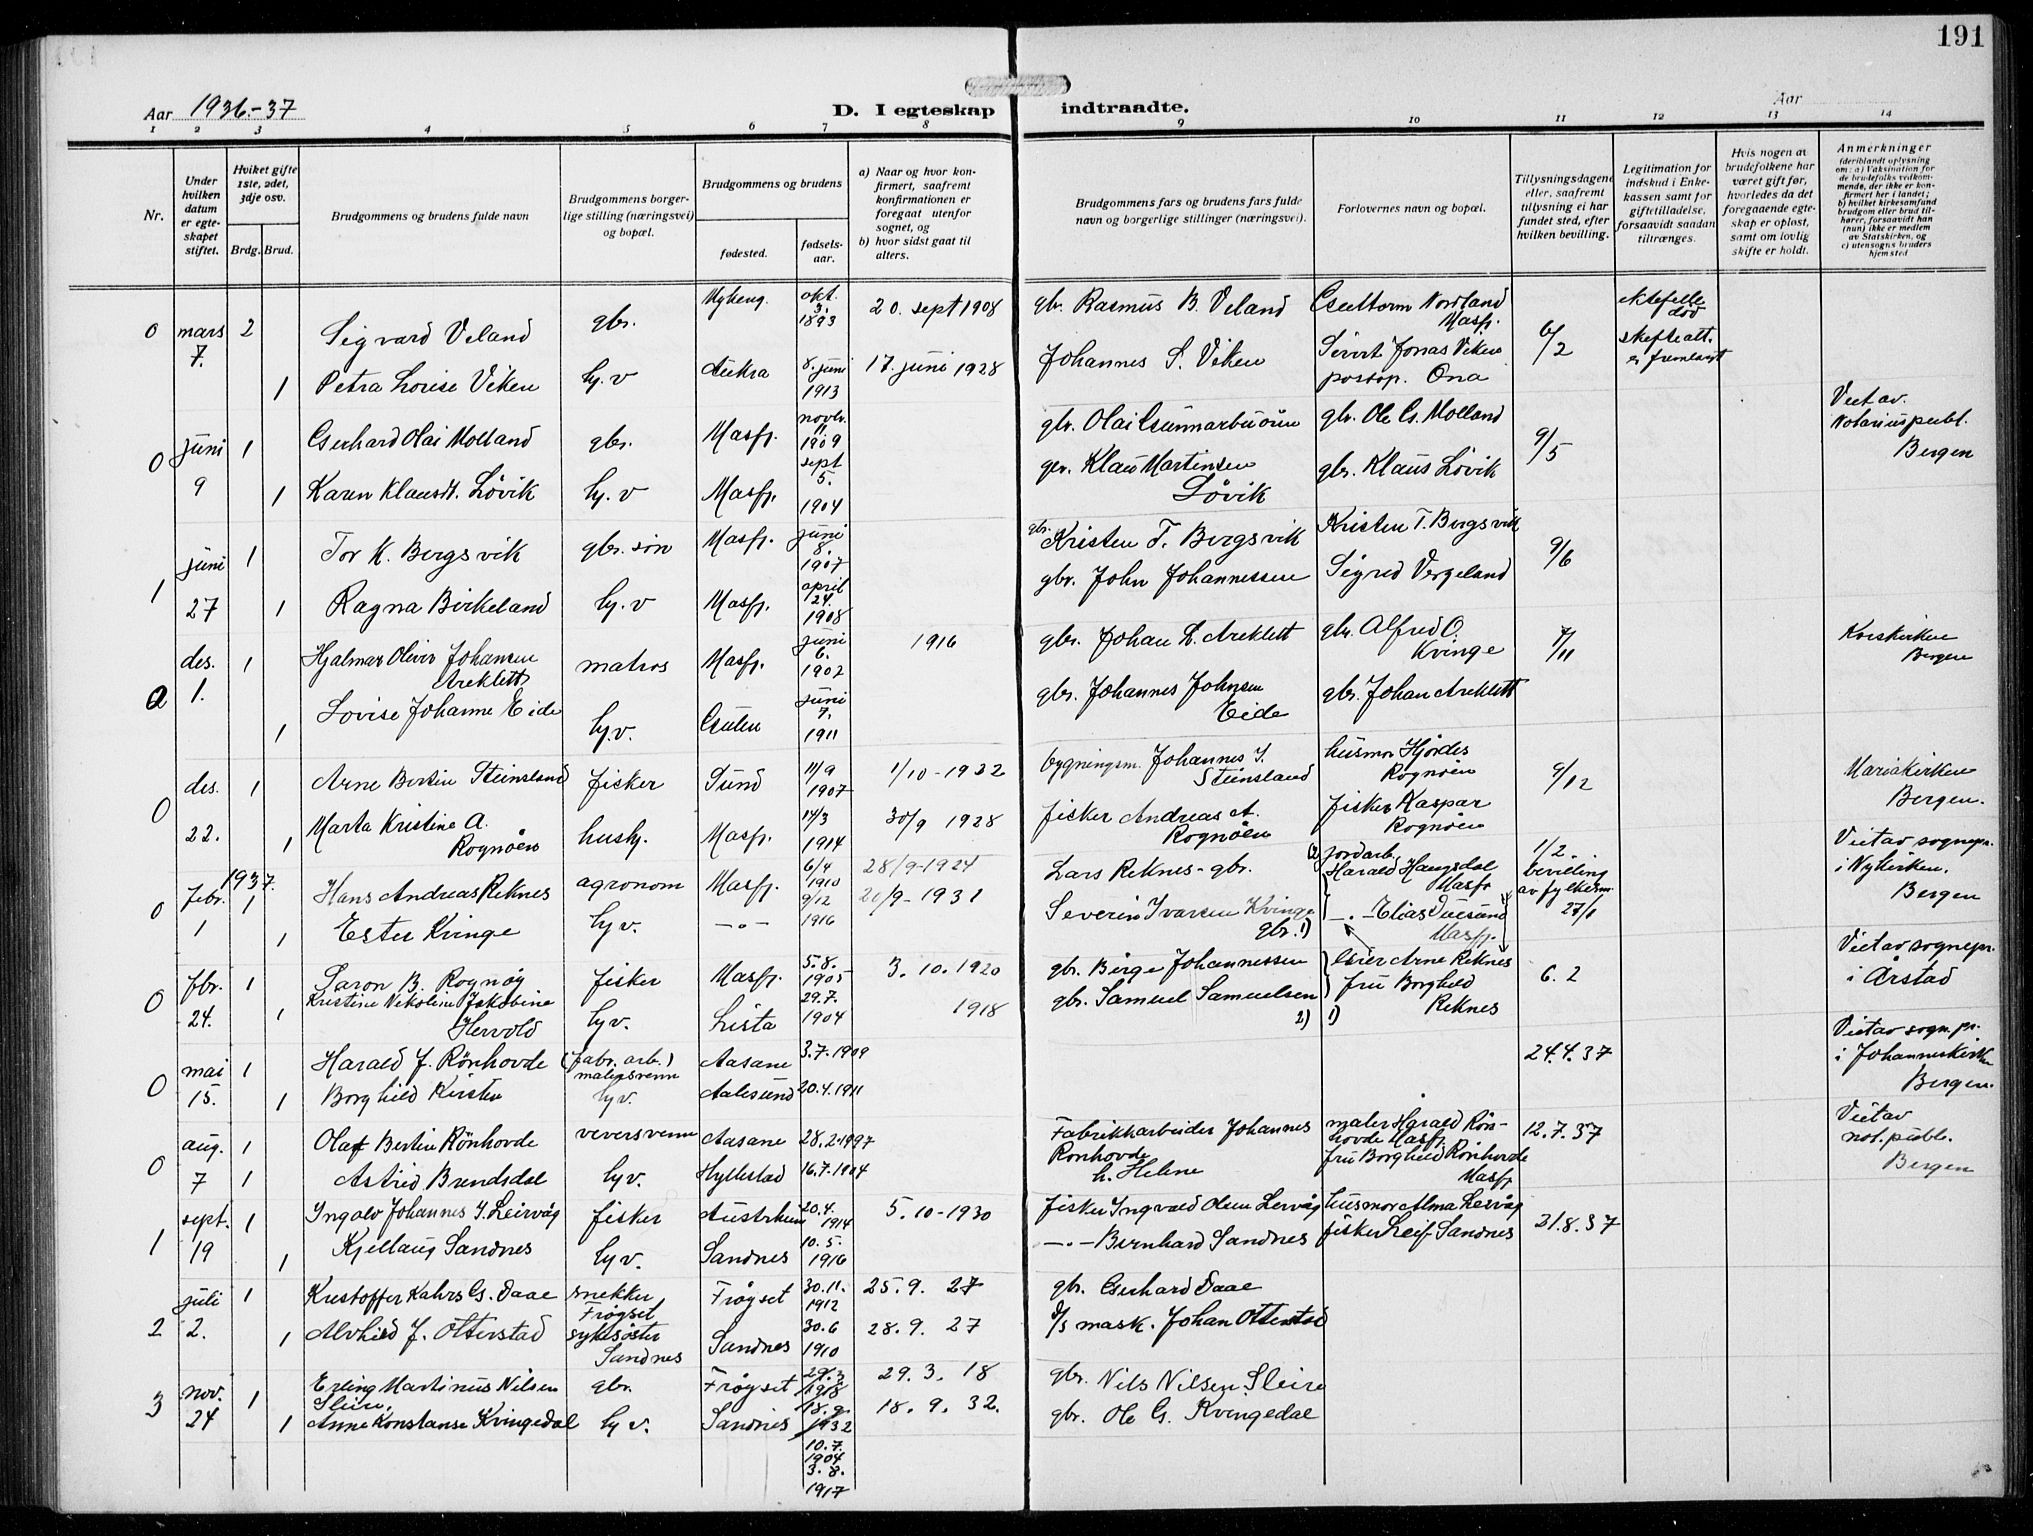 191
Aar 1936.-37
D. I egteskap indtraadte.
Aar
1 2 3 4 5 6 7 8 9 10 11 12 13 14
Nr.
Under hvilken datum er egteskapet stiftet.
Hviket gifte 1ste, 2det, 3dje osv.
Brdg. Brud.
Brudgommens og brudens fulde navn
Brudgommens borgerlige stilling (næringsvei) og bopæl.
Brudgommens og brudens
fødested.
fødselsaar.
a) Naar og hvor konfirmert, saafremt konfirmationen er foregaat utenfor sognet, og
b) hvor sidst gaat til alters.
Brudgommens fars og brudens fars fulde navn og borgerlige stillinger (næringsvei).
Forlovernes navn og bopæl.
Tillysningsdagene eller, saafremt tillysning ei har fundet sted, efter hvilken bevilling.
Legitimation for indskud i Enkekassen samt for giftetilladelse, forsaavidt saadan tiltrænges.
Hvis nogen av brudefolkene har været gift før, hvorledes da det foregaaende egteskap er opløst, samt om lovlig skifte er holdt.
Anmerkninger
(deriblandt oplysning om: a) Vaksination for de brudefolks vedkommende, der ikke er konfirmert her i landet; b) hvilket kirkesamfund brudgom eller brud tilhører, forsaavidt han (hun) ikke er medlem av Statskirken, og c) utensogns bruders hjemsted
0 mars 7. 2 Sigvard Veland gbr. okt. 3. 1893 20. sept 1908 gbr. Rasmus B. Veland Nordland Masfj. 6/2 ektefelle død skifteatt. er fremlagt
1 Petra Lovise Viken hj. v Aukra 8. juni 1913 17. juni 1928 Johannes S. Viken Sivert Jonas Viken postop. Ona
0 juni 9 1 Gerhard Olai Molland gbr. Masfj. novbr. 11. 1909 gbr. Olai gbr. Ole G. Molland 9/5 Viet av Notarius publ. Bergen
1 Karen Klausdt. Løvik hj. v Masfj. sept 5. 1904 gbr. Klaus Martinsen Løvik gbr. Klaus Løvik
1 juni 27 1 Tor K. Bergsvik gbr. søn Masfj. juni 8. 1907 gbr. Kristen T. Bergsvik Kristen T. Bergsvik 9/6
1 Ragna Birkeland hj. v Masfj. april 24. 1908 gbr. John Johannessen Sigred Vergeland
des. 1. 1 Hjalmar Oliver Johansen Areklett matros Masfj. juni 6. 1902 1916 gbr. Johan L. Areklett gbr. Alfred O. Kvinge 7/11 Korskirken Bergen
1 Lovise Johanne Eide hj.v. Gulen juni 7. 1911 gbr. Johannes Johnsen Eide gbr. Johan Areklett
0 des. 22. 1 Arne Bertin Steinsland fisker Sund 11/9 1907 1/10-1932 bygningsm. Johannes I. Steinsland husmor Hjørdis Rognøen 9/12 Mariakirken Bergen.
1 Marta Kristine A. Rognøen hushj. Masfj. 14/3 1914 30/9 1928 fisker Andreas A. Rognøen fisker Kaspar Rognøen
1937.
0 febr. 1 1 Hans Andreas Reknes agronom Masfj. 6/4 1910 28/9-1924 Lars Reknes - gbr. 2) jordarb. Harald Haugsdal Masfj 1/2. bevilling av fylkesm. 27/1 Viet av sognepr. i Nykirken. Bergen
1 Ester Kvinge hj v. -"- 9/12 1916 20/9-1931 Severin Ivarsen Kvinge gbr. 1) -"- Elias Duesund Masfj.
0 fbr. 24. 1 Saron B. Rognøy fisker Masfj. 5.8. 1905 3. 10. 1920 gbr. Børge Johannessen Arne Reknes 6. 2 Viet av sognepr. i Årstad
1 Kristine Nikoline Jakobine Hervold hj v. Lista 29.7. 1904 1918 gbr. Samuel Samuelsen 2) fru Borghild Reknes 1)
0 mai 15. 1 Harald J. Rönhovde (fabr. arb.) malersvenn Aasane 3.7.1909 24.4.37 Viet av sogn.pr. i Johanneskirk Bergen.
1 Borghild Kirsten hj v. Aalesund 20.4.1911
0 aug. 7 1 Olaf Bertin Rönhovde veversvenn Aasane 28.2.1897 Fabrikkarbeider Johannes Rønhovde maler Harald Rönhovde Masfj. 12.7.37 Viet av not. publ. Bergen
1 Astrid Brendsdal hj v. Hyllestad 16.7.1904 h. Helene fru Borghild Rönhovde Masfj
1 sept. 19 1 Ingolv Johannes I. Leirvåg fisker Austrheim 20.4. 1914 5.10-1930 fisker Ingvald Olsen Leirvåg husmor Alma Leirvåg 21.8.37
1 Kjellaug Sandnes hj v. Sandnes 10.5. 1916 -"- Bernhard Sandnes fisker Leif Sandnes
2 juli 2. 1 Kristoffer Kahrs G. Daae snekker Frøyset Frøyset 30.11. 1912 25.9. 27 gbr. Gerhard Daae
1 Alvhild J. Otterstad sykesøster Sandnes Sandnes 30.6 1910 28.9. 27 d/s mask. Johan Otterstad
3 nov. 24 1 Erling Martinus Nilsen Sleire. gbr. Frøyset 29.3 1918 29.3. 18 gbr. Nils Nilsen Sleire
1 Anne Konstanse Kvingedal hj v. Sandnes 18.9. 1932 18. 9. 32. gbr. Ole G. Kvingedal
10.7. 1904
3.8. 1917